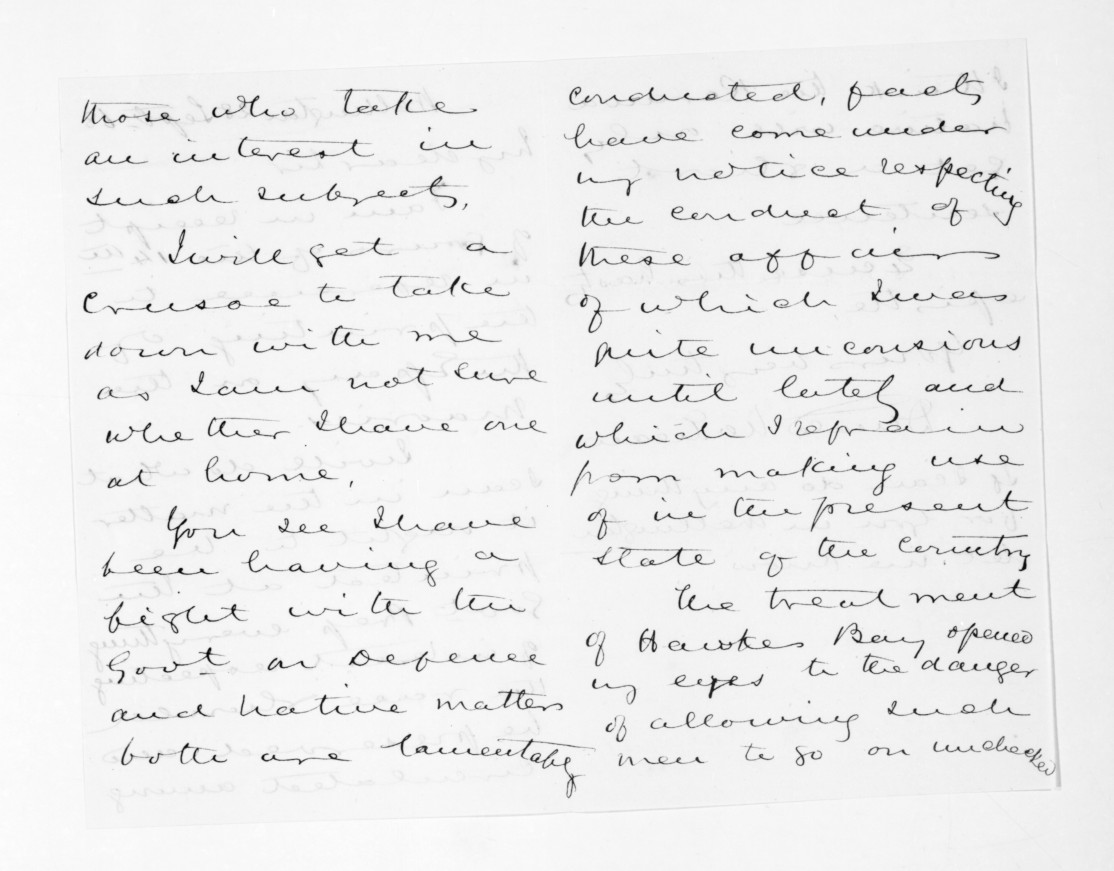 those who take
an interest in
such subjects.
I will get a
Crusoe to take
down with me
as I am not sure
whether I have one
at home.
You see I have
been having a
fight with the
Govt on Defence
and Native matters
both are lamentably
conducted, facts
have come under
my notice respecting
the conduct of
these affairs
of which I was
quite unconsious
until lately and
which I refrain
from making use
of in the present
state of the Country
The treatment
of Hawkes Bay opened
my eyes to the danger
of allowing such
men to go on unchecked